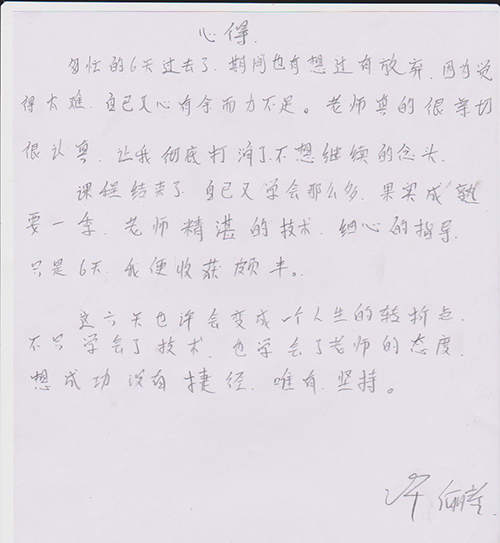 心得.
匆忙的6天过去了.期间也有想过有放弃.因为觉
得太难.自己又心有余而力不足。老师真的很亲切
很认真.让我彻底打消了不想继续的念头.
课程结束了.自己又学会那么多.果实成熟
要一季.老师精湛的技术.细心的指导.
只是6天.我便收获颇丰。
这六天也许会变成一个人生的转折点.
不只学会了技术.也学会了老师的态度.
想成功没有捷径.唯有坚持。